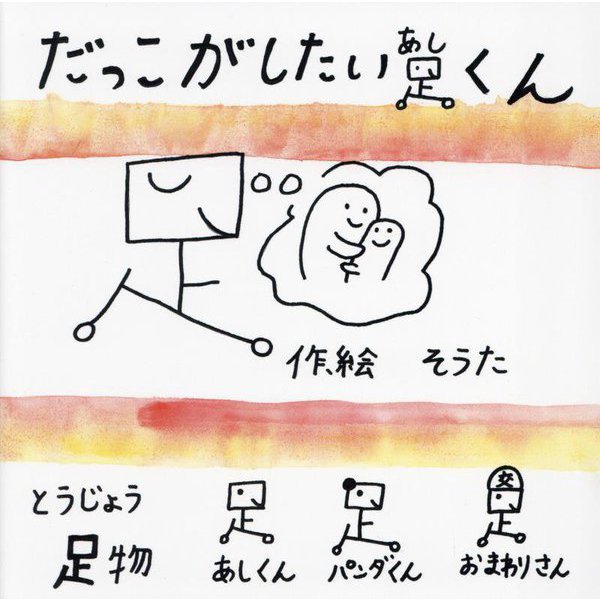 だっこがしたい足くん
あし
作、絵 そうた
とうじょう
足物
あしくん
パンダくん
交
おまわりさん